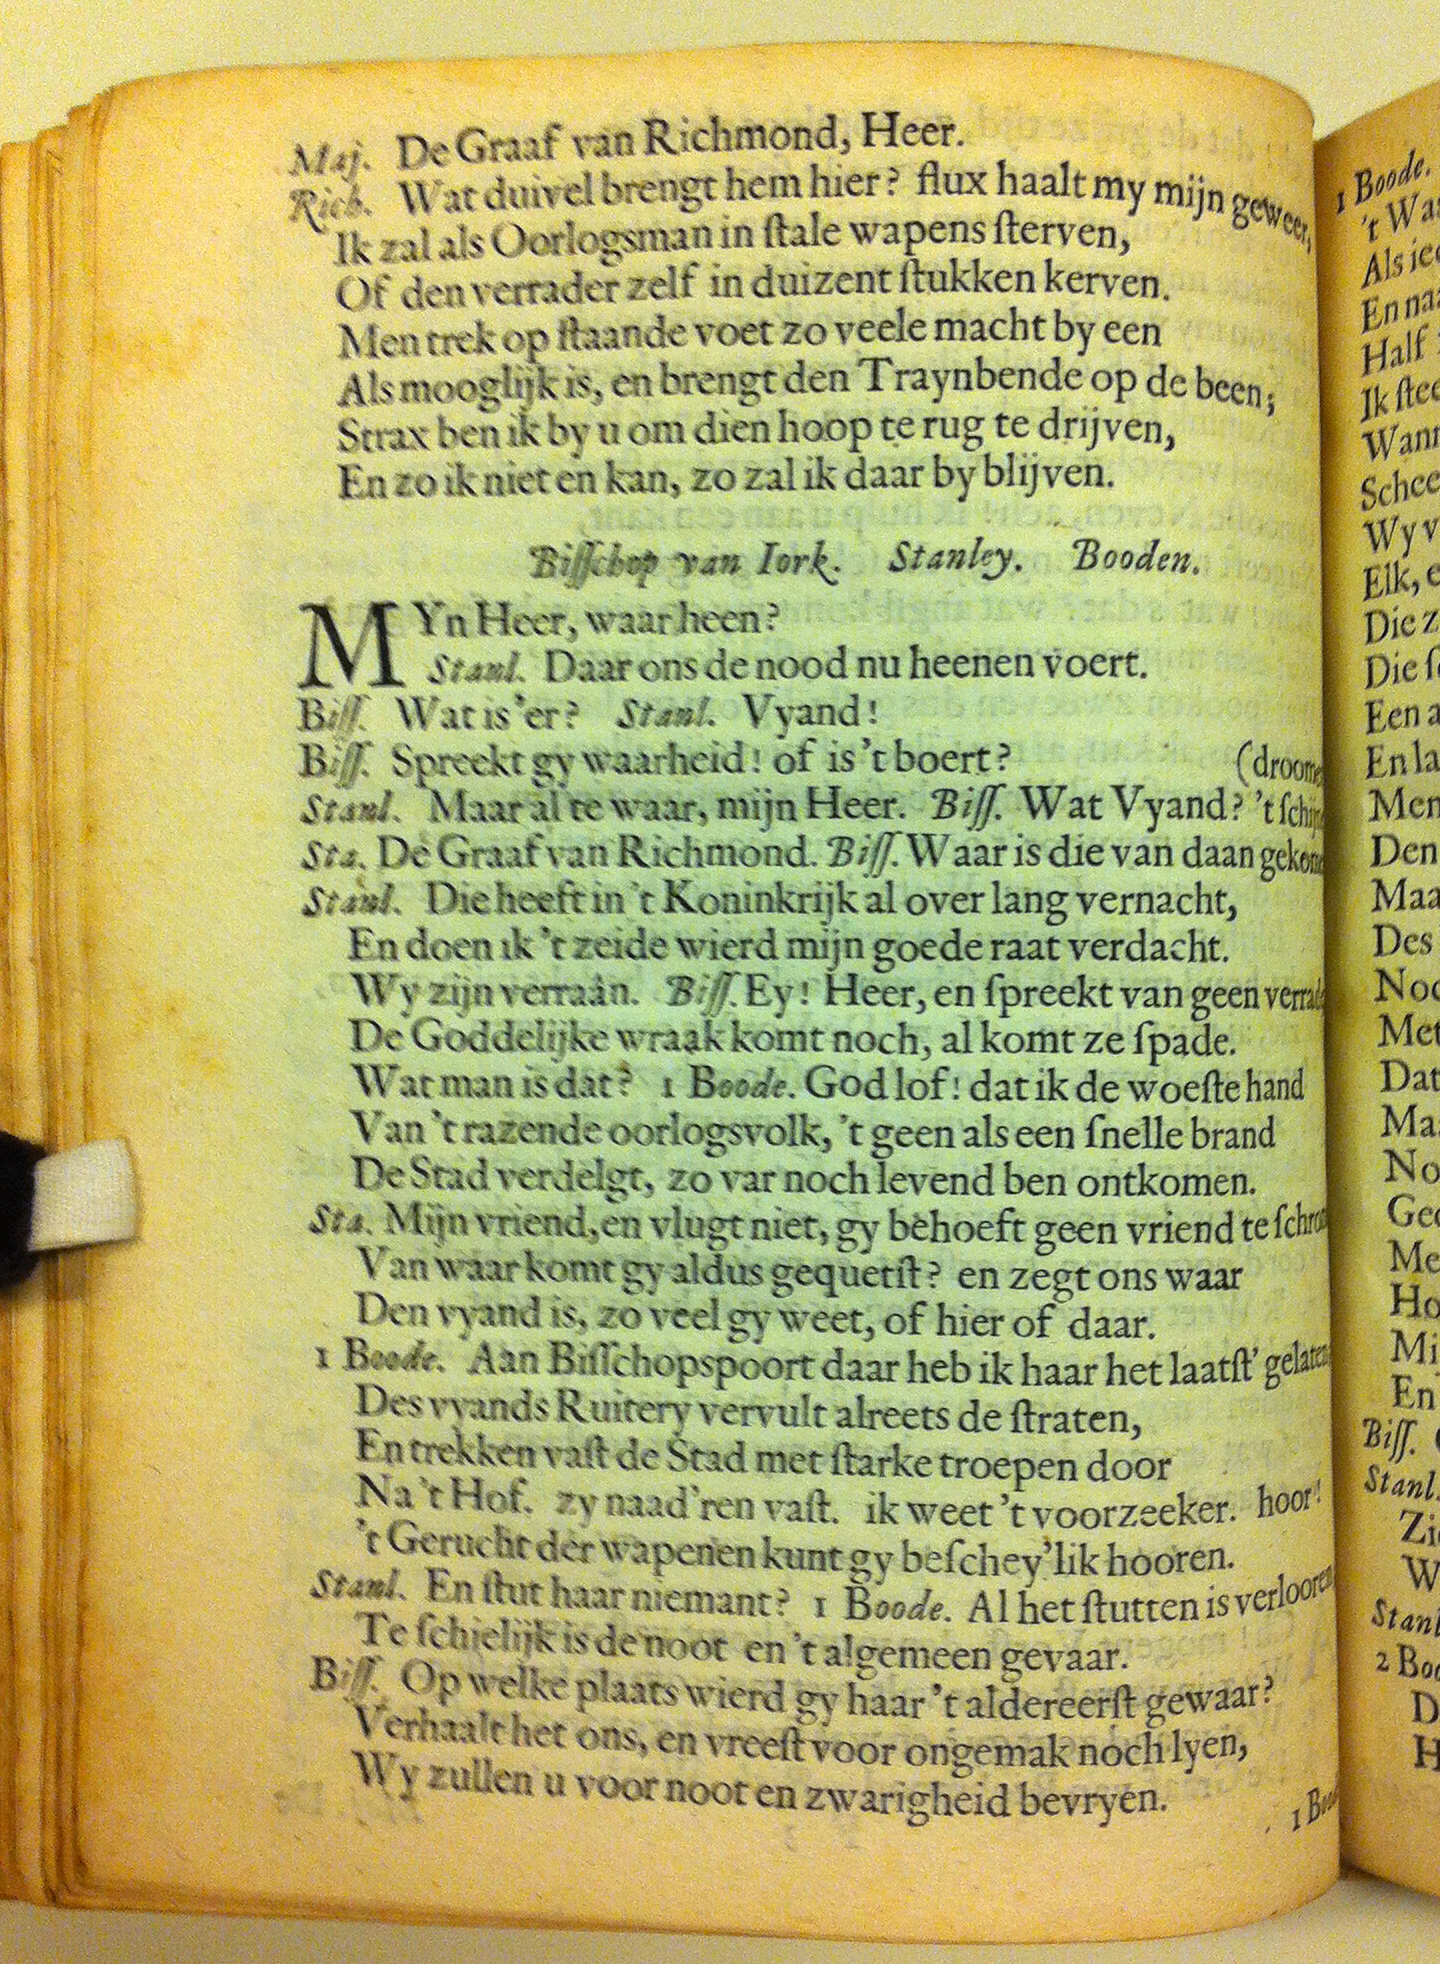 Maj. De Graaf van Richmond, Heer.
Rich. Wat duivel brengt hem hier? flux haalt my mijn geweer,
Ik zal als Oorlogsman in ſtale wapens ſterven,
Of den verrader zelf in duizent ſtukken kerven.
Men trek op ſtaande voet zo veele macht by een
Als mooglijk is, en brengt den Traynbende op de been;
Strax ben ik by u om dien hoop te rug te drijven,
En zo ik niet en kan, zo zal ik daar by blijven.
Biſſchop van Iork. Stanley. Booden.
MYn Heer, waar heen?
Stanl. Daar ons de nood nu heenen voert.
Biſſ. Wat is 'er? Stanl. Vyand!
Biſſ. Spreekt gy waarheid! of is 't boert?
Stanl. Maar al te waar, mijn Heer. Biſſ. Wat Vyand? 't
Sta. De Graaf van Richmond. Biſſ. Waar is die van daan
Stanl. Die heeft in 't Koninkrijk al over lang vernacht,
En doen ik 't zeide wierd mijn goede raat verdacht.
Wy zijn verraân. Biſſ. Ey! Heer, en ſpreekt van geen
De Goddelijke wraak komt noch, al komt ze ſpade.
Wat man is dat? 1 Boode. God lof! dat ik de woeſte hand
Van 't razende oorlogsvolk, 't geen als een ſnelle brand
De Stad verdelgt, zo var noch levend ben ontkomen.
Sta. Mijn vriend, en vlugt niet, gy behoeft geen vriend te
Van waar komt gy aldus gequetſt? en zegt ons waar
Den vyand is, zo veel gy weet, of hier of daar.
1 Boode. Aan Biſſchopspoort daar heb ik haar het laatſt'
Des vyands Ruitery vervult alreets de ſtraten,
En trekken vaſt de Stad met ſtarke troepen door
Na 't Hof. zy naad'ren vaſt. ik weet 't voorzeeker. hoor!
't Gerucht der wapenen kunt gy beſchey'lik hooren.
Stanl. En ſtut haar niemant? 1 Boode. Al het ſtutten is verlooren
Te ſchielijk is de noot en 't algemeen gevaar.
Biſſ. Op welke plaats wierd gy haar 't aldereerſt gewaar?
Verhaalt het ons, en vreeſt voor ongemak noch lyen,
Wy zullen u voor noot en zwarigheid bevryen.
1
1 Boode.
't
Als
En
Half
Ik
Wy
Elk,
Die
Die
Een
En
Men
Den
Des
Met
Biſſ.
Stanl.
2